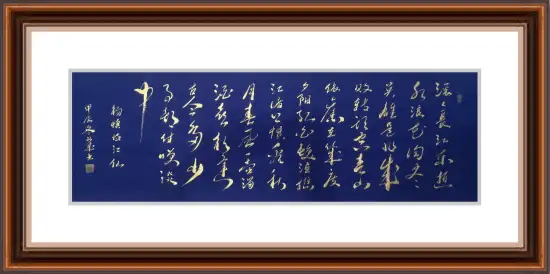 滚〻長江東逝
水浪花淘尽
英雄是非成
敗转頭空青山
依舊在幾度
夕陽红白发渔樵
江渚上惯看秋
月春風一壶濁
酒喜相逢
古今多少
事都付笑谈
中
楊慎临江仙
甲辰